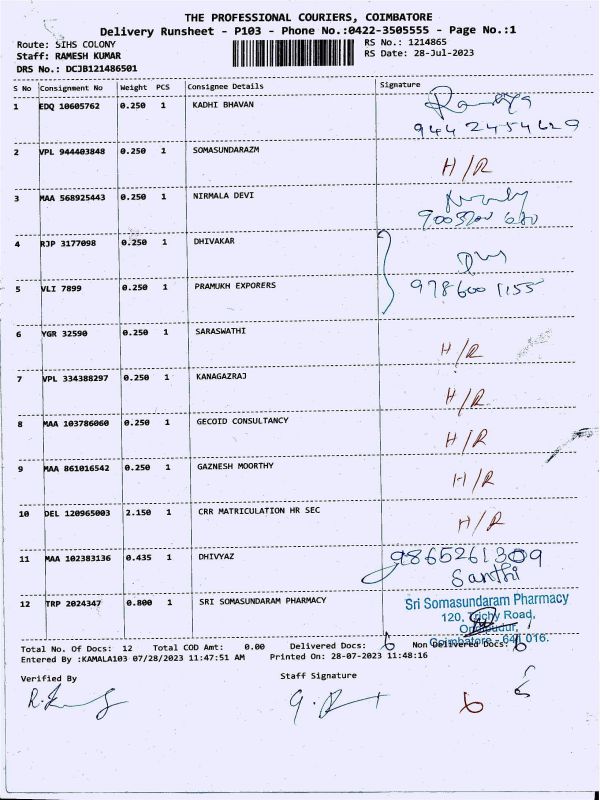 THE PROFESSIONAL COURIERS, COIMBATORE
Delivery Runsheet - P103 - Phone No.:0422-3505555 - Page No.:1
Route: SIHS COLONY RS No.: 1214865
Staff: RAMESH KUMAR RS Date: 28-Jul-2023
DRS No.: DCJB121486501
S No Consignment No Weight PCS Consignee Details Signature
1 EDQ 10605762 0.250 1 KADHI BHAVAN
9442454629
2 VPL 944403848 0.250 1 SOMASUNDARAZM H/R
3 MAA 568925443 0.250 1 NIRMALA DEVI
4 RJP 3177098 0.250 1 DHIVAKAR
5 VLI 7899 0.250 1 PRAMUKH EXPORERS 9786001155
6 YGR 32590 0.250 1 SARASWATHI H/R
7 VPL 334388297 0.250 1 KANAGAZRAJ H/R
8 MAA 103786060 0.250 1 GECOID CONSULTANCY H/R
9 MAA 861016542 0.250 1 GAZNESH MOORTHY H/R
10 DEL 120965003 2.150 1 CRR MATRICULATION HR SEC H/R
11 MAA 102383136 0.435 1 DHIVYAZ 9865261309
Santhi
12 TRP 2024347 0.800 1 SRI SOMASUNDARAM PHARMACY Sri Somasundaram Pharmacy
120, Trichy Road,
Coimbatore - 641 016.
Total No. Of Docs: 12 Total COD Amt: 0.00 Delivered Docs: 6 Non Delivered Docs: 6
Entered By :KAMALA103 07/28/2023 11:47:51 AM Printed On: 28-07-2023 11:48:16
Verified By Staff Signature
6 6